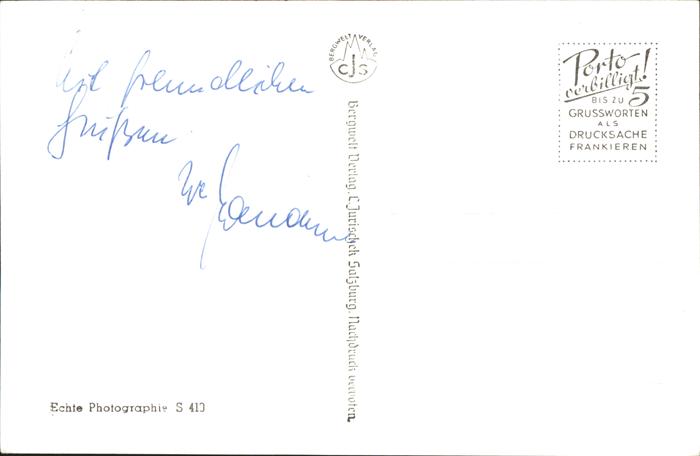 Mit freundlichen
Grüßen
BERGWELT VERLAG
CJS
Bergwelt Verlag, C. Jurischek Salzburg. Nachdruck verboten.
Porto
verbilligt!
BIS ZU 5
GRUSSWORTEN
ALS
DRUCKSACHE
FRANKIEREN
Echte Photographie S 410